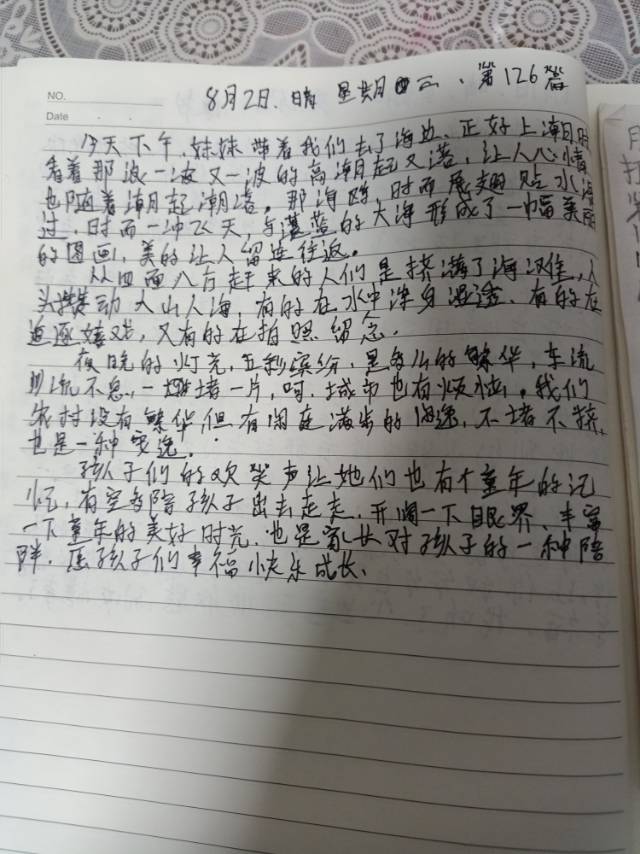 NO.
Date
8月2日.晴 星期三、第126篇
今天下午,妹妹带着我们去了海边.正好上潮时
看着那波一波又一波的高潮起又落,让人心情
也随着潮起潮落。那海鸥,时而展翅贴水滑
过.时而一冲飞天,与湛蓝的大海形成了一幅美丽
的图画,美的让人留连往返。
从四面八方赶来的人们是挤满了海滩,人
头攒动人山人海,有的在水中浑身湿透、有的在
追逐嬉戏,又有的在拍照留念.
夜晚的灯光,五彩缤纷,是多么的繁华,车流
川流不息,一堵一片,呵.城市也有烦恼。我们
农村没有繁华但有闲庭满步的,不堵不挤,
也是一种
孩子们的欢笑声让她们也有个童年的记
忆,有空多陪孩子出去走走.开阔一下眼界、丰富
一下童年的美好时光.也是家长对孩子的一种陪
伴.愿孩子们幸福快乐成长、